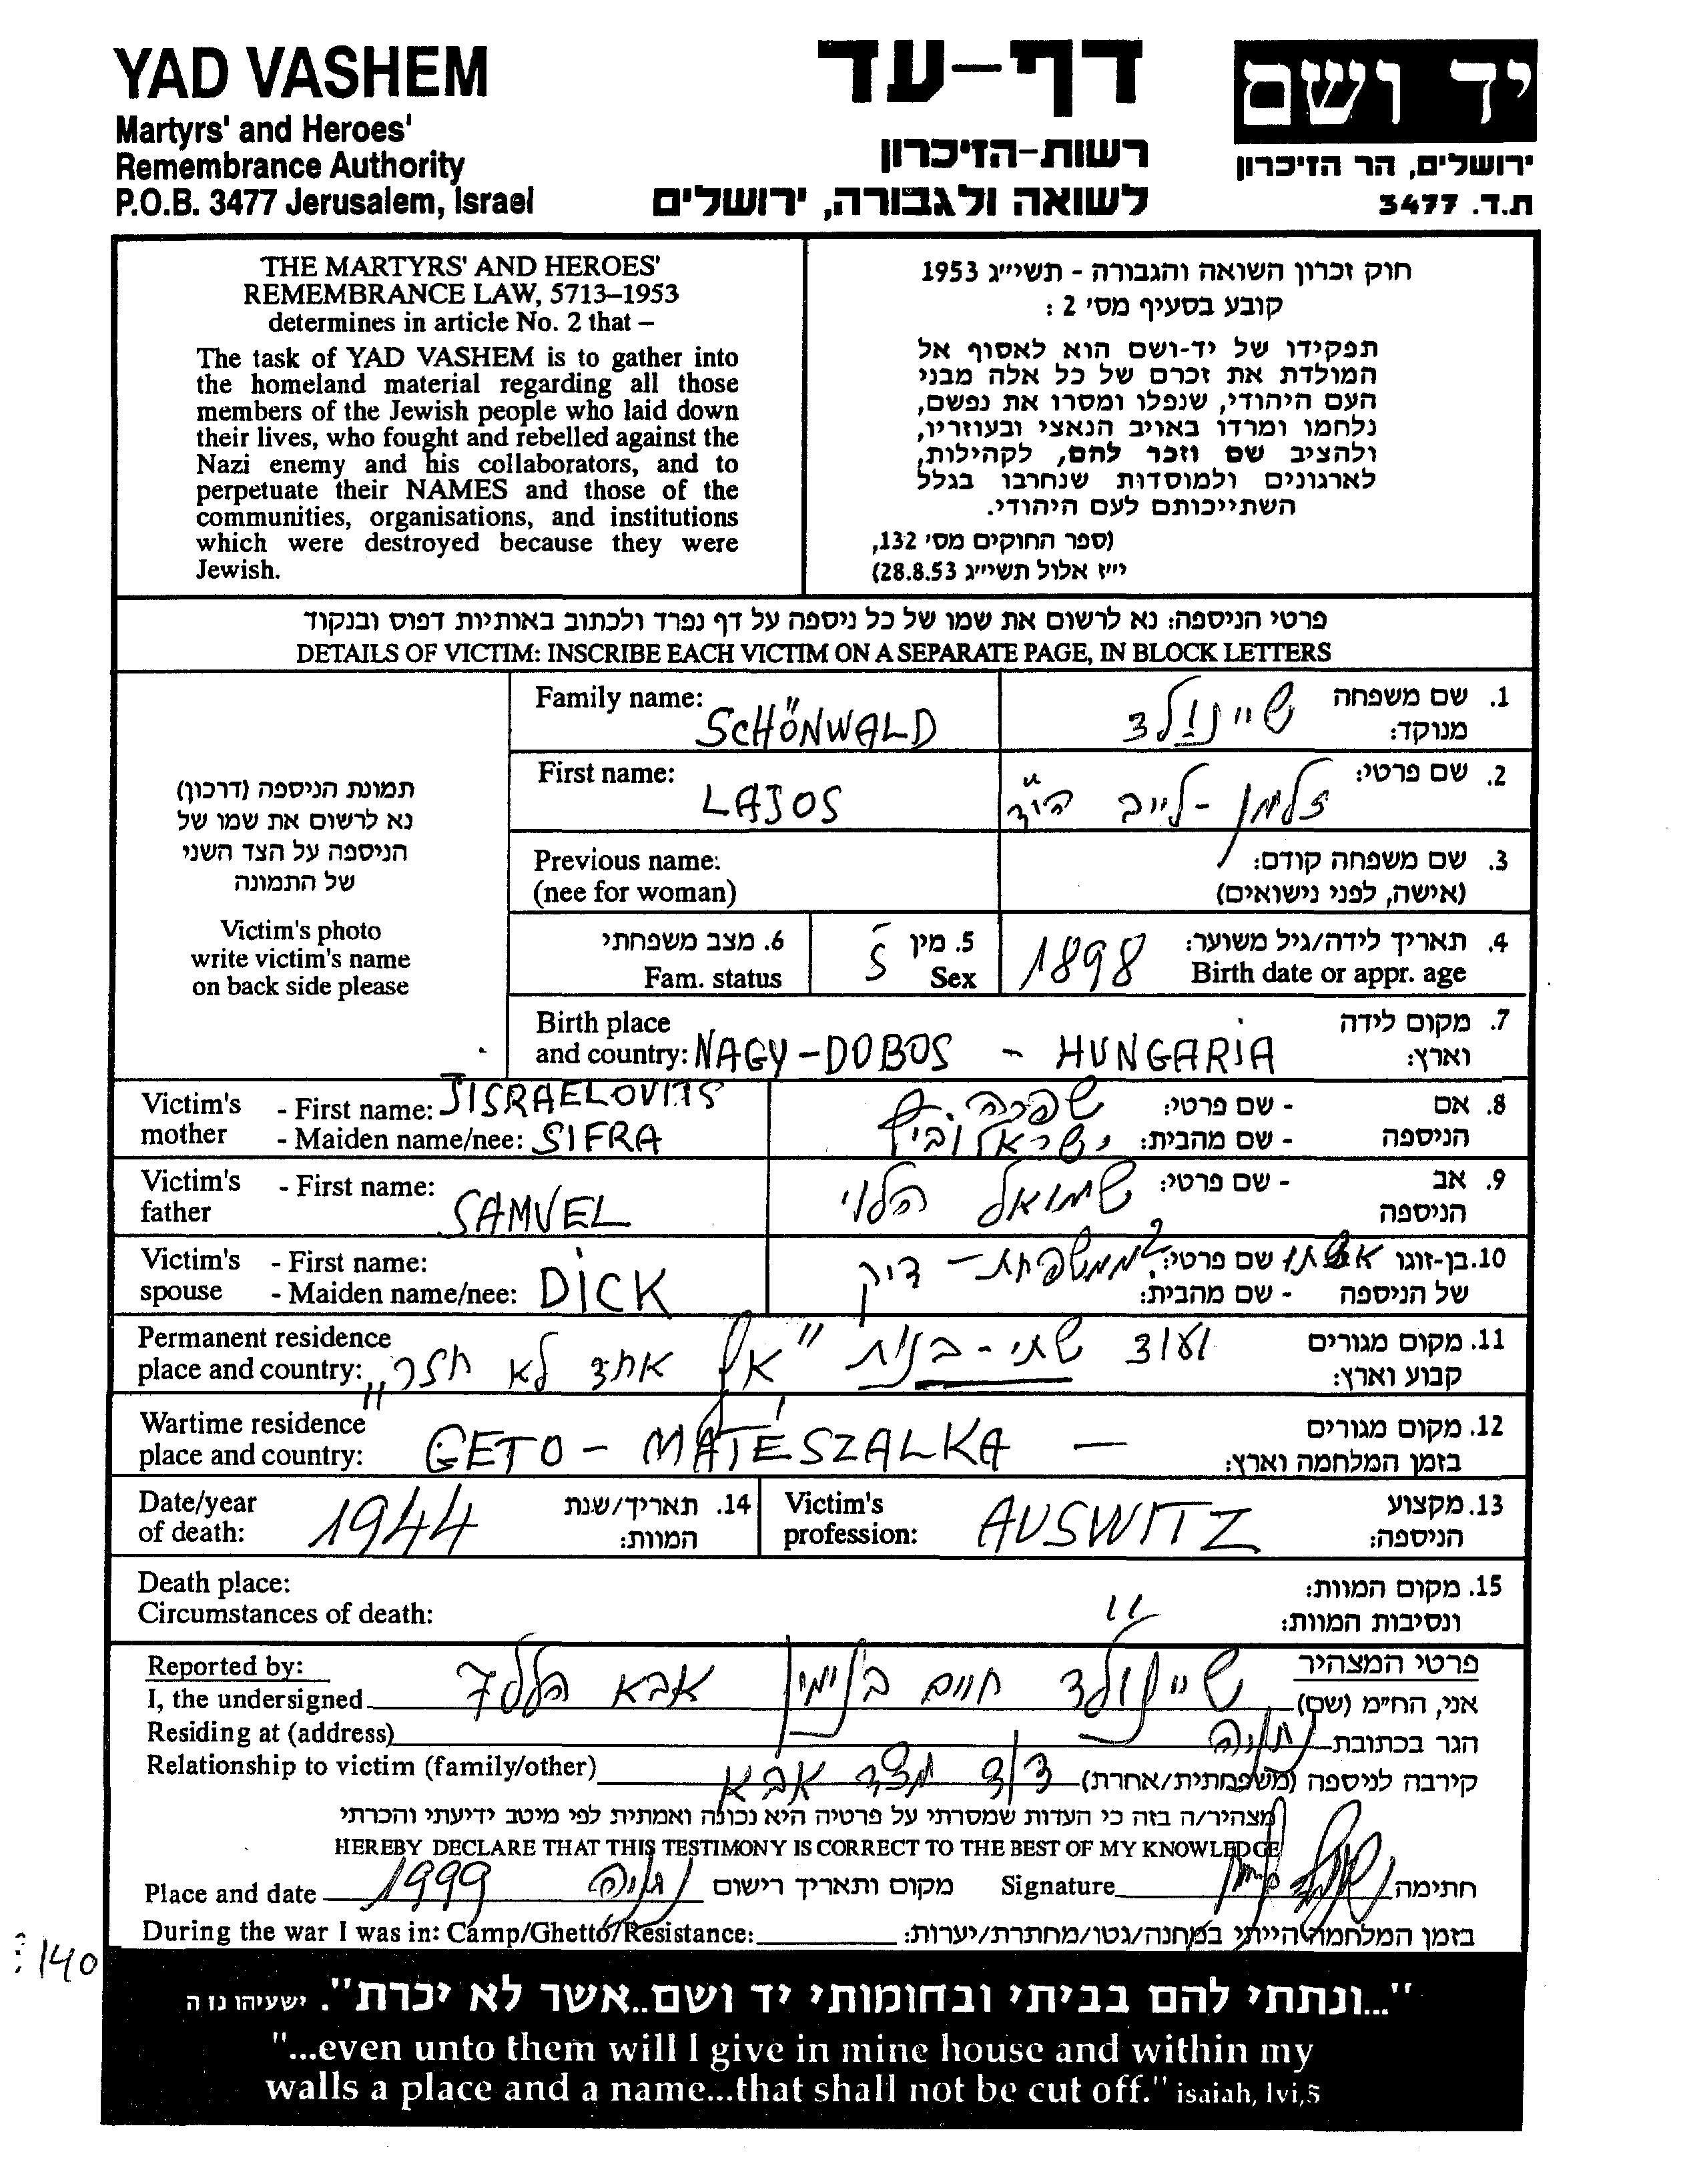 YAD VASHEM
Martyrs' and Heroes'
Remembrance Authority
P.O.B. 3477 Jerusalem, Israel
דף-עד
רשות-הזיכרון
לשואה ולגבורה, ירושלים
יד ושם
ירושלים, הר הזיכרון
ת.ד. 3477
THE MARTYRS' AND HEROES'
REMEMBRANCE LAW, 5713–1953
determines in article No. 2 that –
The task of YAD VASHEM is to gather into
the homeland material regarding all those
members of the Jewish people who laid down
their lives, who fought and rebelled against the
Nazi enemy and his collaborators, and to
perpetuate their NAMES and those of the
communities, organisations, and institutions
which were destroyed because they were
Jewish.
חוק זכרון השואה והגבורה - תשי״ג 1953
קובע בסעיף מס' 2 :
תפקידו של יד-ושם הוא לאסוף אל
המולדת את זכרם של כל אלה מבני
העם היהודי, שנפלו ומסרו את נפשם,
נלחמו ומרדו באויב הנאצי ובעוזריו,
ולהציב שם וזכר להם, לקהילות,
לארגונים ולמוסדות שנחרבו בגלל
השתייכותם לעם היהודי.
(ספר החוקים מס' 132,
י״ז אלול תשי״ג 28.8.53)
פרטי הניספה: נא לרשום את שמו של כל ניספה על דף נפרד ולכתוב באותיות דפוס ובנקוד
DETAILS OF VICTIM: INSCRIBE EACH VICTIM ON A SEPARATE PAGE, IN BLOCK LETTERS
תמונת הניספה (דרכון)
נא לרשום את שמו של
הניספה על הצד השני
של התמונה
Victim's photo
write victim's name
on back side please
Family name: SCHÖNWALD
1. שם משפחה מנוקד: שיינולד
First name: LAJOS
2. שם פרטי: זלמן - לייב הי״ד
Previous name:
(nee for woman)
3. שם משפחה קודם:
(אישה, לפני נישואים)
4. תאריך לידה/גיל משוער: 1898
Birth date or appr. age
5. מין
Sex
6. מצב משפחתי
Fam. status
Birth place
and country: NAGY-DOBOS - HUNGARIA
7. מקום לידה
וארץ:
Victim's mother
- First name: JISRAELOVITS
- Maiden name/nee: SIFRA
8. אם הניספה
- שם פרטי: שפרה
- שם מהבית: ישראלוביץ
Victim's father
- First name: SAMUEL
9. אב הניספה
- שם פרטי: שמואל הלוי
Victim's spouse
- First name:
- Maiden name/nee: DICK
10. בן-זוגו אשתו שם פרטי: ממשפחת - דיק
של הניספה - שם מהבית:
Permanent residence
place and country:
11. מקום מגורים
קבוע וארץ:
ועוד שתי - בנות "אף אחד לא חזר"
Wartime residence
place and country: GETO - MÁTÉSZALKA —
12. מקום מגורים
בזמן המלחמה וארץ:
Date/year
of death: 1944
14. תאריך/שנת
המוות:
Victim's
profession: AUSWITZ
13. מקצוע
הניספה:
Death place:
Circumstances of death: "
15. מקום המוות:
ונסיבות המוות:
Reported by:
פרטי המצהיר
I, the undersigned
אני, הח״מ (שם) שיינולד חיים בנימין אבא הלל
Residing at (address)
הגר בכתובת נתניה
Relationship to victim (family/other)
קירבה לניספה (משפחתית/אחרת) דוד מצד אבא
מצהיר/ה בזה כי העדות שמסרתי על פרטיה היא נכונה ואמתית לפי מיטב ידיעתי והכרתי
HEREBY DECLARE THAT THIS TESTIMONY IS CORRECT TO THE BEST OF MY KNOWLEDGE
Place and date 1999 נתניה מקום ותאריך רישום Signature חתימה
During the war I was in: Camp/Ghetto/Resistance: בזמן המלחמה הייתי במחנה/גטו/מחתרת/יערות:
140
"...ונתתי להם בביתי ובחומותי יד ושם..אשר לא יכרת". ישעיהו נו ה
"...even unto them will I give in mine house and within my
walls a place and a name...that shall not be cut off." isaiah, lvi,5